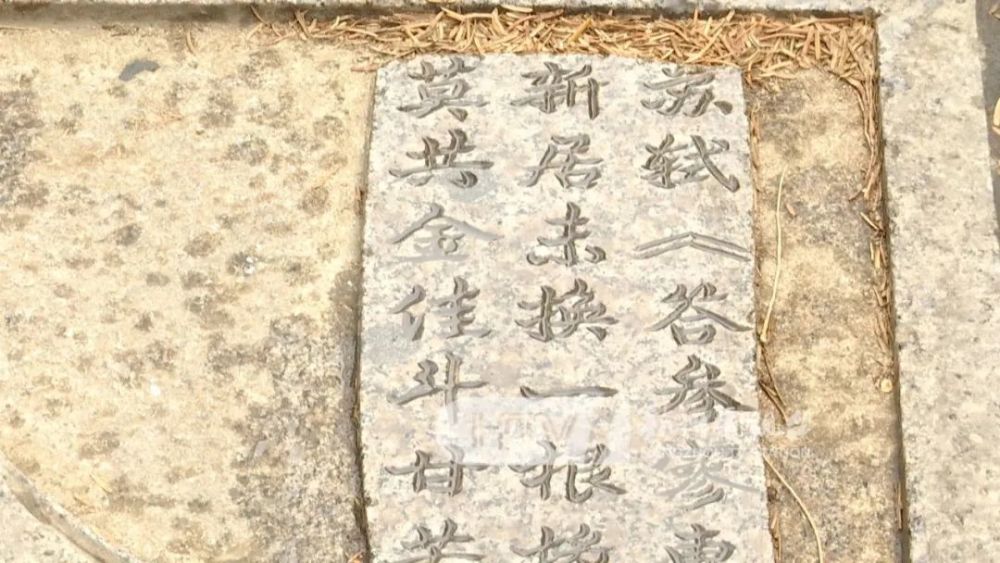 苏轼《答参寥
新居未换一根
莫共金佳斗甘苦